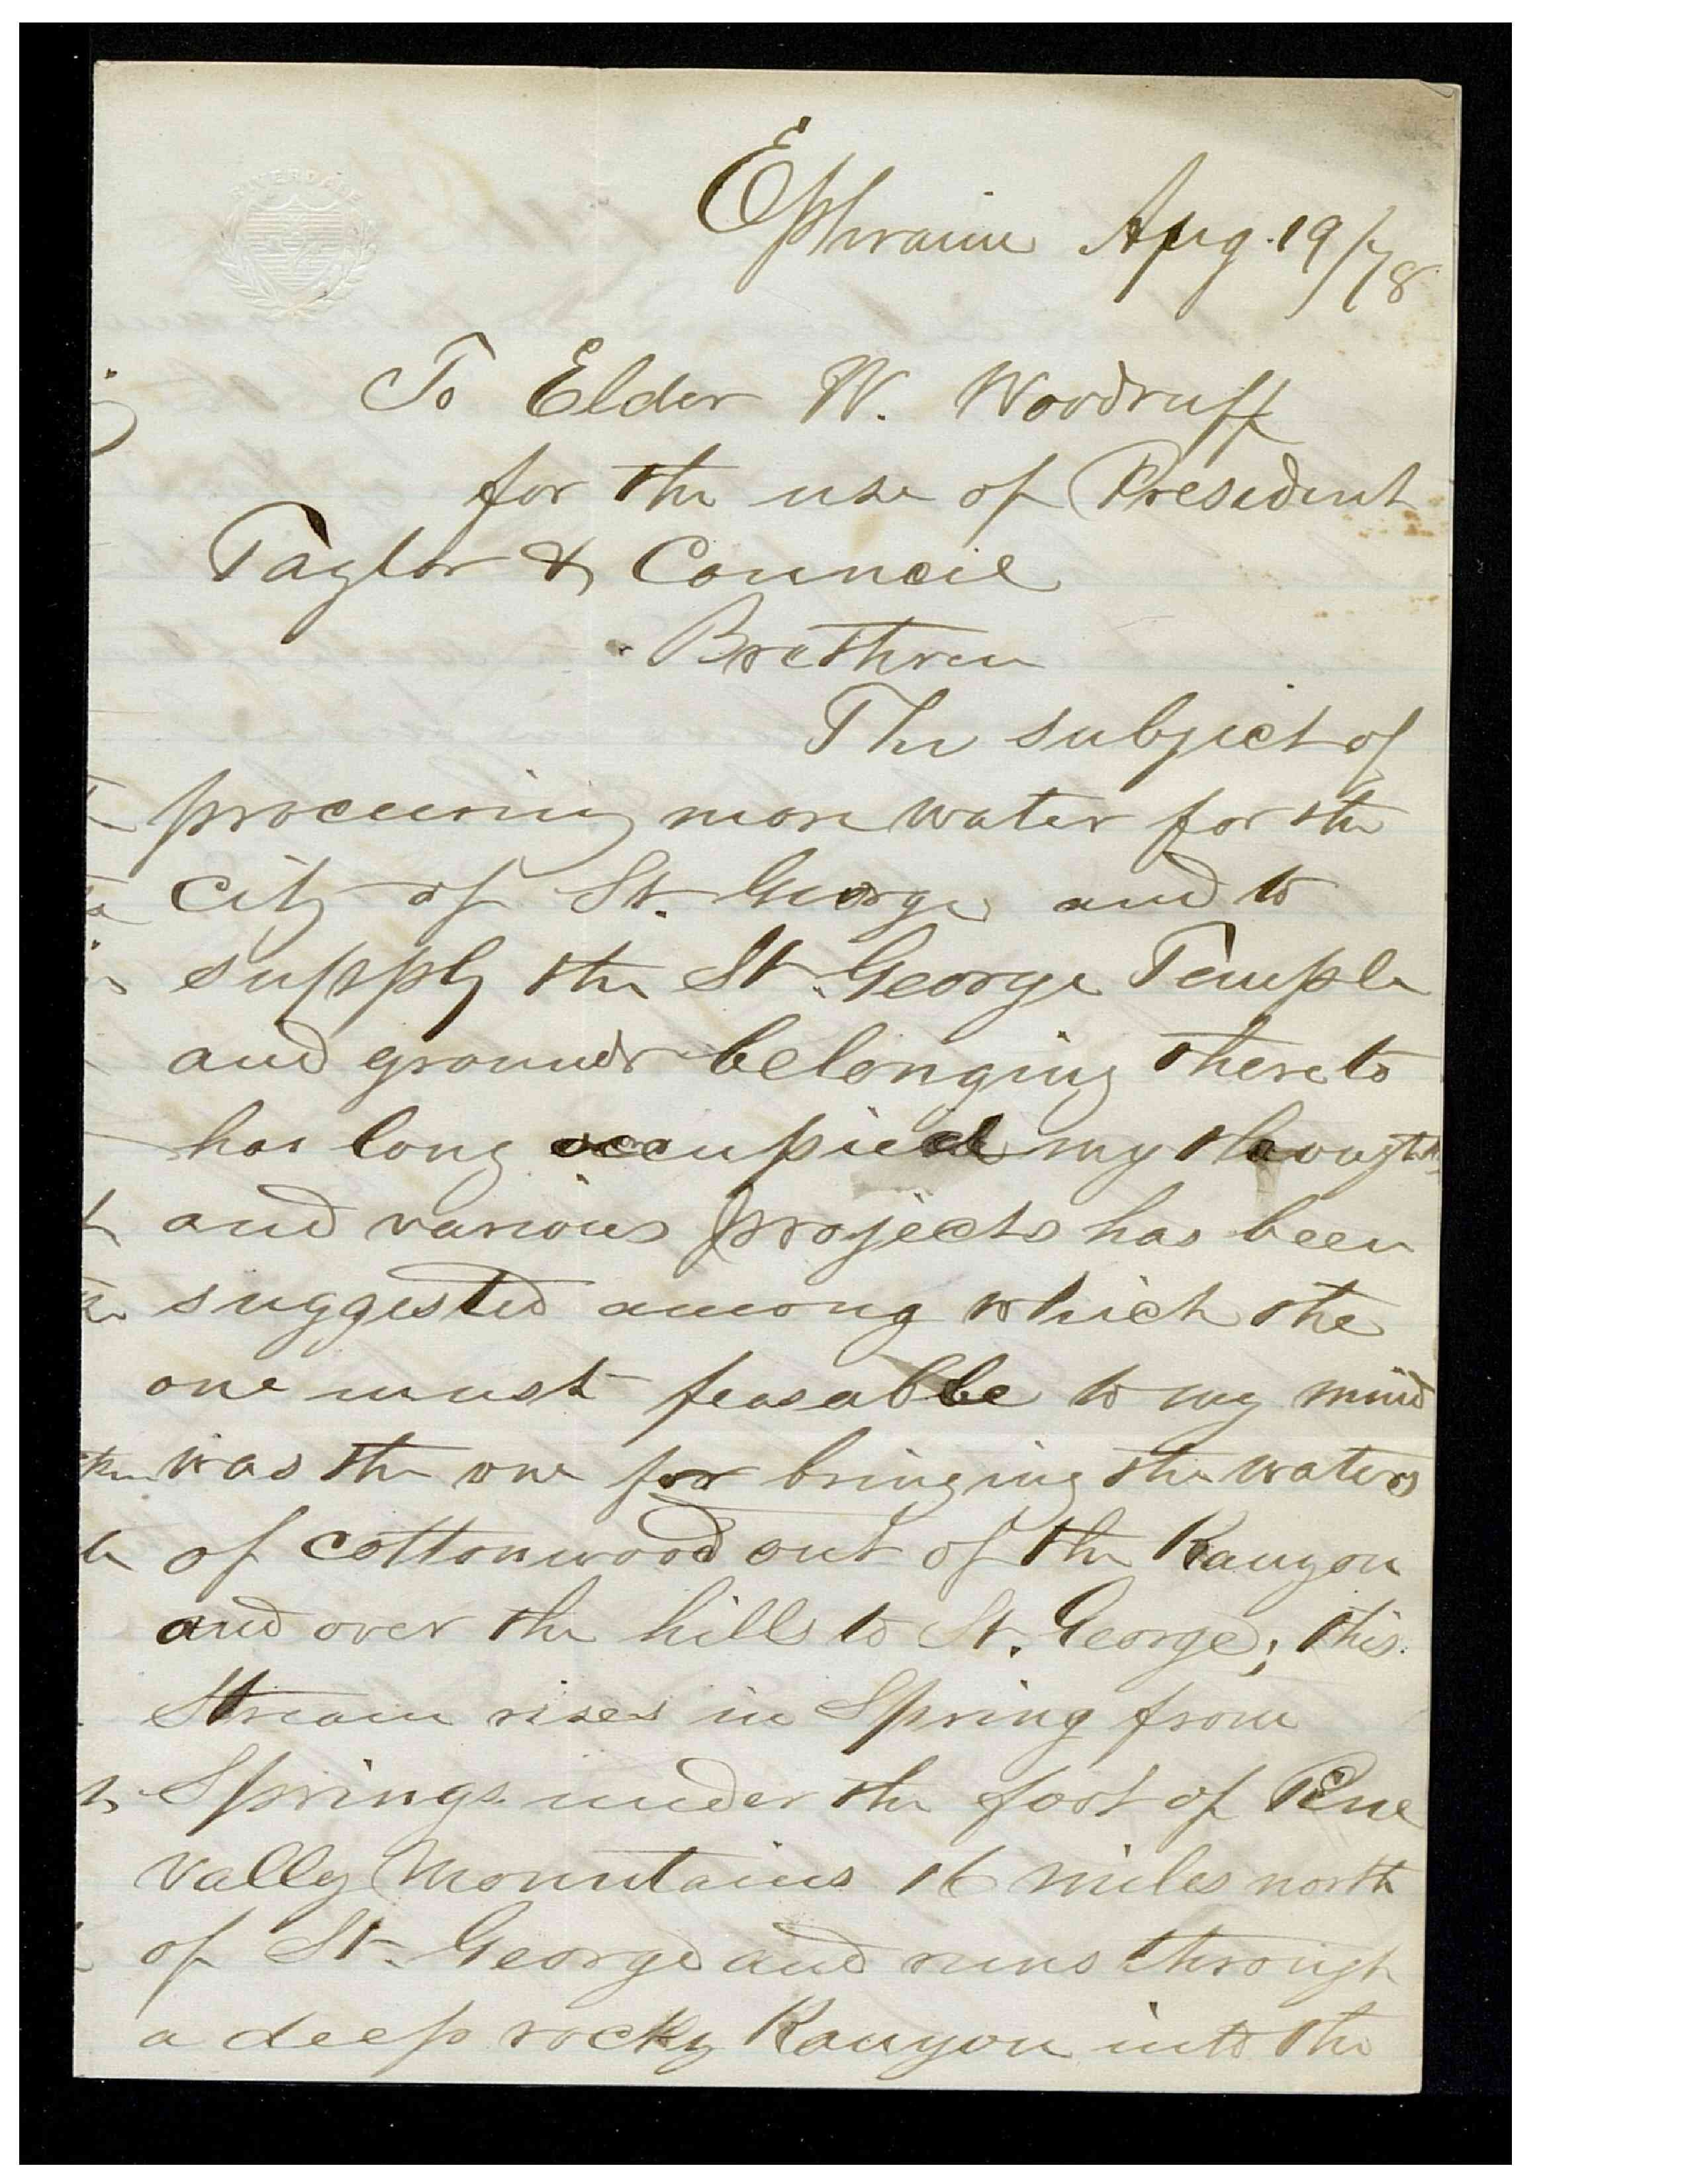 RIVERDALE
Ephraim Aug. 19/78
To Elder W. Woodruff
for the use of President
Taylor & Council
Brethren
The subject of
procuring more water for the
City of St. George and to
supply the St. George Temple
and grounds belonging thereto
has long occupied my thoughts
and various projects has been
suggested among which the
one must feasable to my mind
was the one for bringing the waters
of cottonwood out of the Kanyon
and over the hills to St. George; this
Stream rises in Spring from
Springs under the foot of Pine
vally Mountains 16 miles north
of St. George and runs through
a deep rocky Kanyon into the